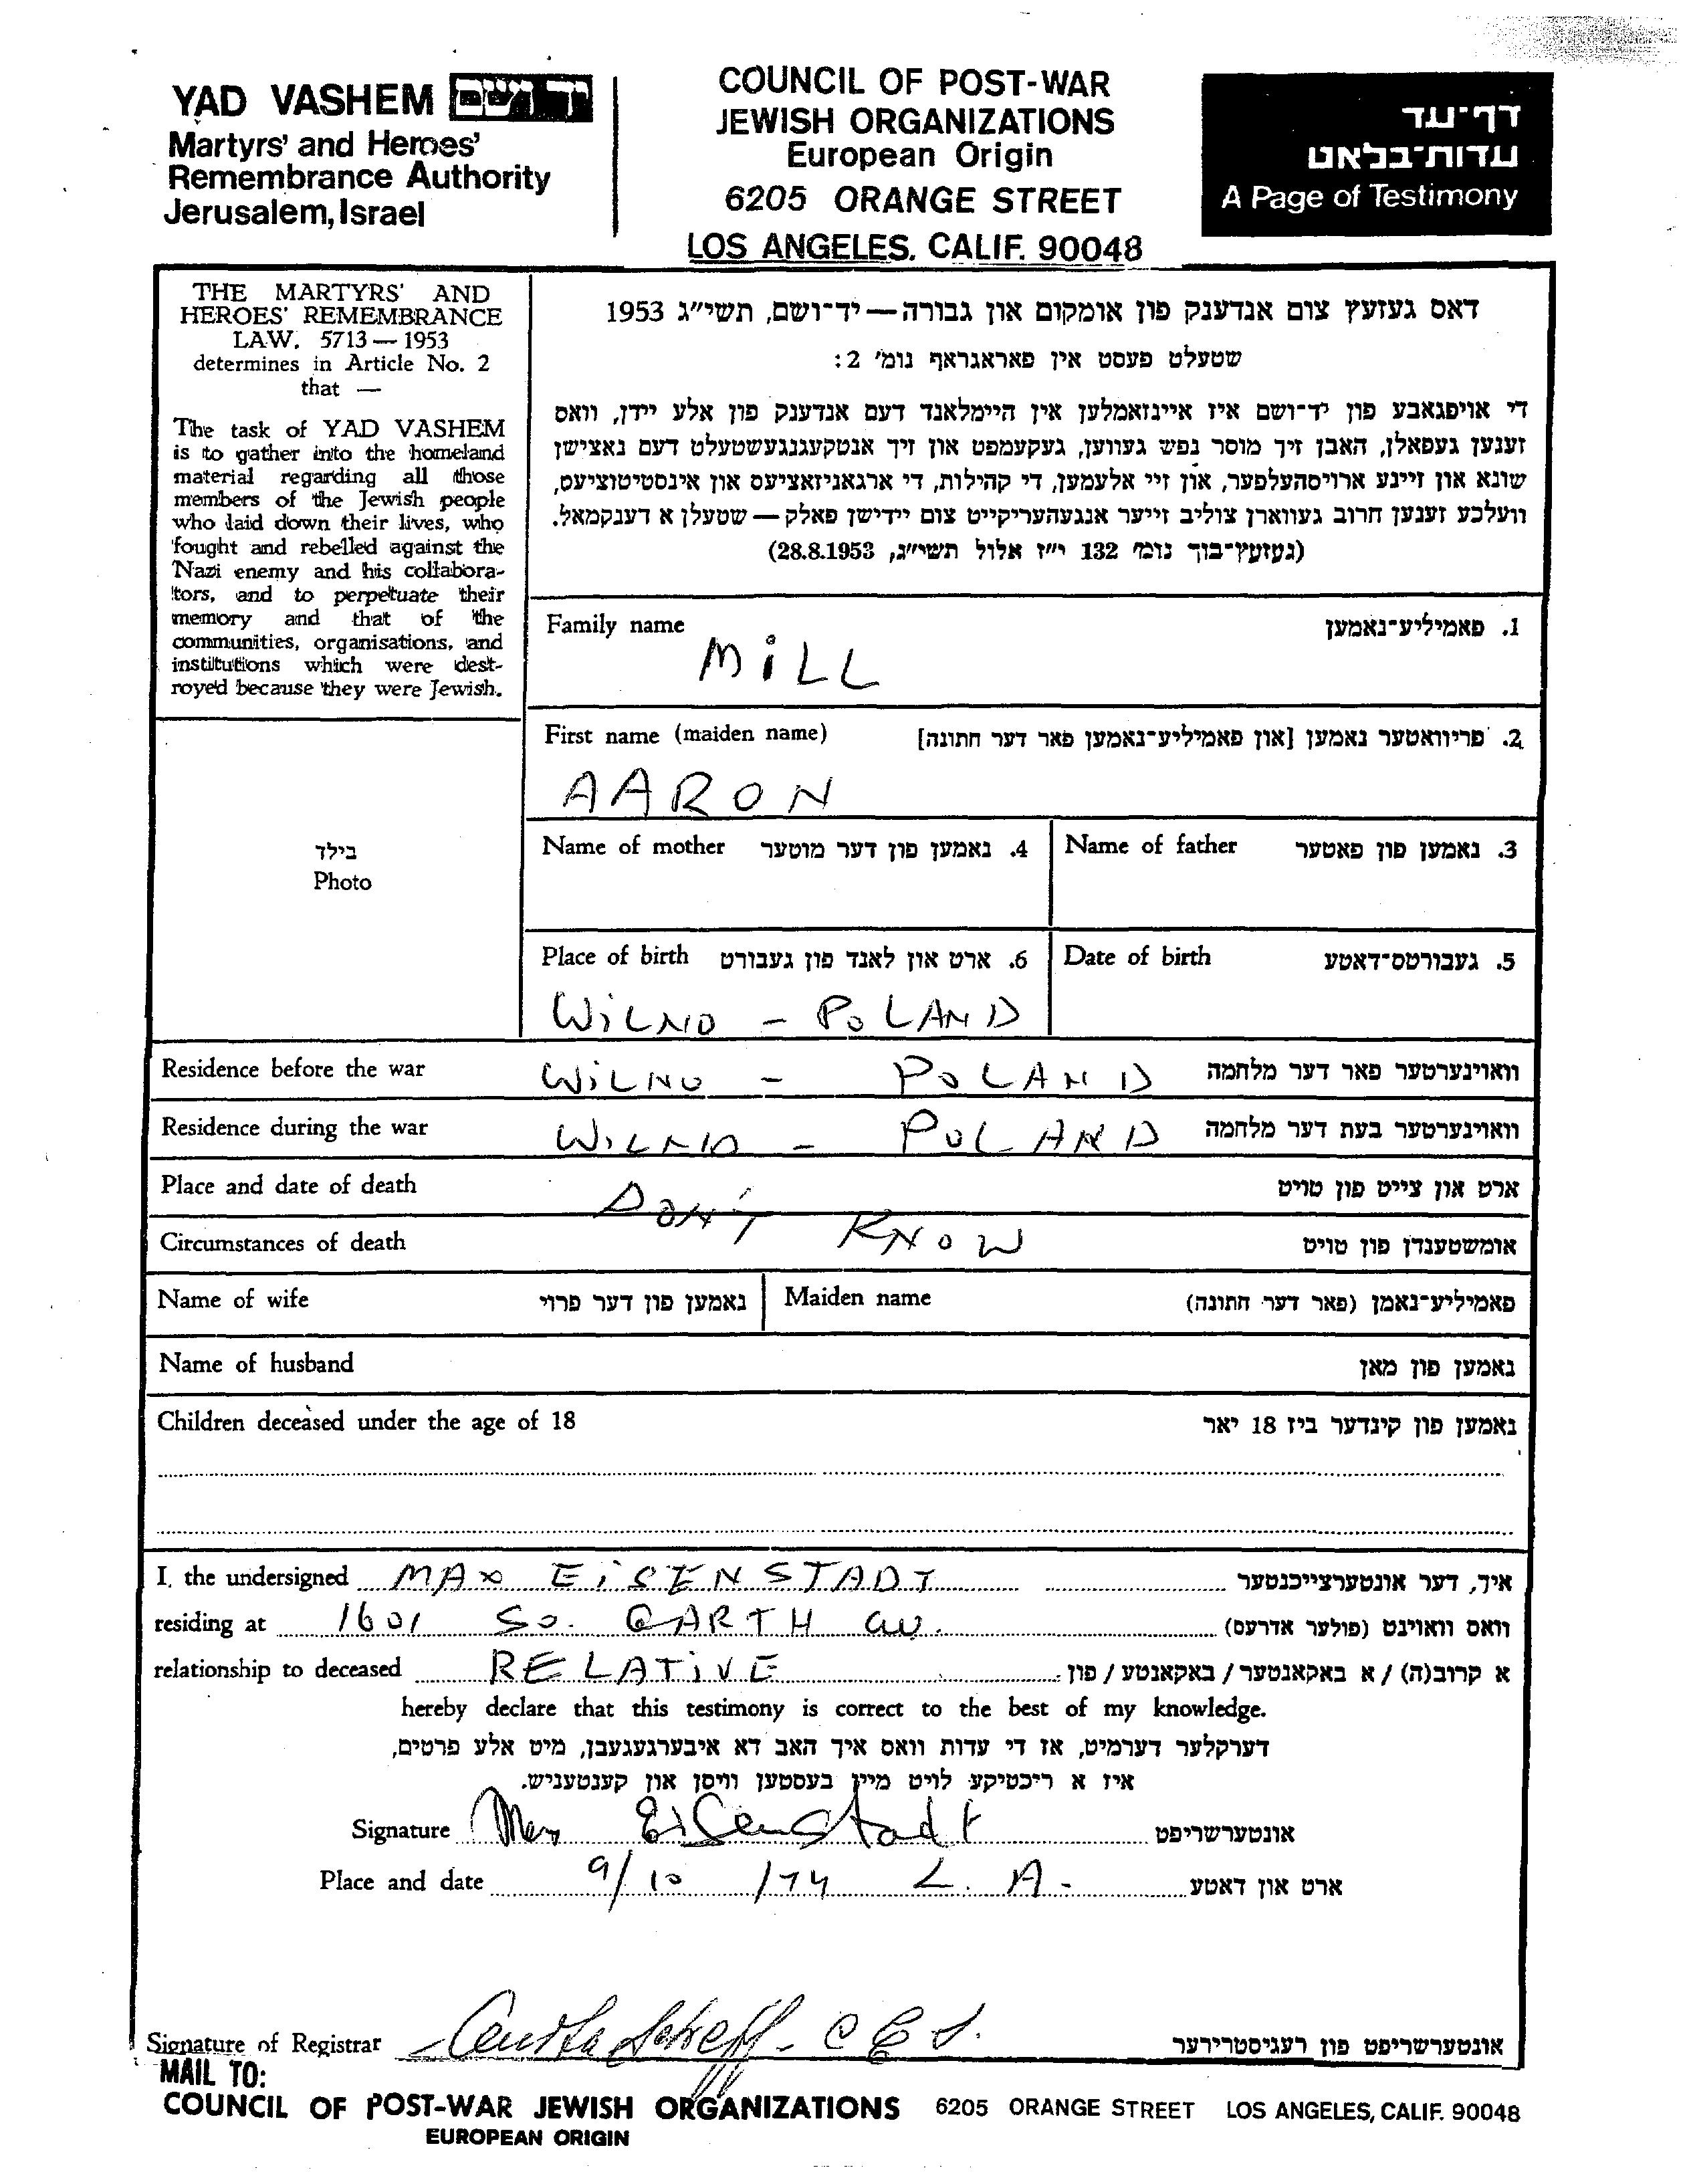 YAD VASHEM יד ושם
Martyrs' and Heroes'
Remembrance Authority
Jerusalem, Israel
COUNCIL OF POST-WAR
JEWISH ORGANIZATIONS
European Origin
6205 ORANGE STREET
LOS ANGELES. CALIF. 90048
דף־עד
עדות־בלאט
A Page of Testimony
THE MARTYRS' AND
HEROES' REMEMBRANCE
LAW. 5713 — 1953
determines in Article No. 2
that —
The task of YAD VASHEM
is to gather into the homeland
material regarding all those
members of the Jewish people
who laid down their lives, who
fought and rebelled against the
Nazi enemy and his collabora-
tors, and to perpetuate their
memory and that of the
communities, organisations, and
institutions which were dest-
royed because they were Jewish.
דאס געזעץ צום אנדענק פון אומקום און גבורה — יד־ושם, תשי״ג 1953
שטעלט פעסט אין פאראגראף נומ׳ 2:
די אויפגאבע פון יד־ושם איז איינזאמלען אין היימלאנד דעם אנדענק פון אלע יידן, וואס
זענען געפאלן, האבן זיך מוסר נפש געווען, געקעמפט און זיך אנטקעגנגעשטעלט דעם נאצישן
שונא און זיינע ארויסהעלפער, און זיי אלעמען, די קהילות, די ארגאניזאציעס און אינסטיטוציעס,
וועלכע זענען חרוב געווארן צוליב זייער אנגעהעריקייט צום יידישן פאלק — שטעלן א דענקמאל.
(געזעץ־בוך נומ׳ 132 י״ז אלול תשי״ג, 28.8.1953)
Family name 1. פאמיליע־נאמען
MiLL
First name (maiden name) 2. פריוואטער נאמען [און פאמיליע־נאמען פאר דער חתונה]
AARON
בילד
Photo
Name of mother 4. נאמען פון דער מוטער Name of father 3. נאמען פון פאטער
Place of birth 6. ארט און לאנד פון געבורט Date of birth 5. געבורטס־דאטע
WiLNO - POLAND
Residence before the war WiLNO - POLAND וואוינערטער פאר דער מלחמה
Residence during the war WiLNO - POLAND וואוינערטער בעת דער מלחמה
Place and date of death DON'T ארט און צייט פון טויט
Circumstances of death KNOW אומשטענדן פון טויט
Name of wife נאמען פון דער פרוי Maiden name פאמיליע־נאמן (פאר דער חתונה)
Name of husband נאמען פון מאן
Children deceased under the age of 18 נאמען פון קינדער ביז 18 יאר
I, the undersigned MAX EiSENSTADT איך, דער אונטערצייכנטער
residing at 1601 So. GARTH av. וואס וואוינט (פולער אדרעס)
relationship to deceased RELATiVE א קרוב(ה) / א באקאנטער / באקאנטע / פון
hereby declare that this testimony is correct to the best of my knowledge.
דערקלער דערמיט, אז די עדות וואס איך האב דא איבערגעגעבן, מיט אלע פרטים,
איז א ריכטיקע לויט מיין בעסטען וויסן און קענטעניש.
Signature Max Eisenstadt אונטערשריפט
Place and date 9/10/74 L. A. ארט און דאטע
Signature of Registrar אונטערשריפט פון רעגיסטרירער
MAIL TO:
COUNCIL OF POST-WAR JEWISH ORGANIZATIONS 6205 ORANGE STREET LOS ANGELES, CALIF. 90048
EUROPEAN ORIGIN